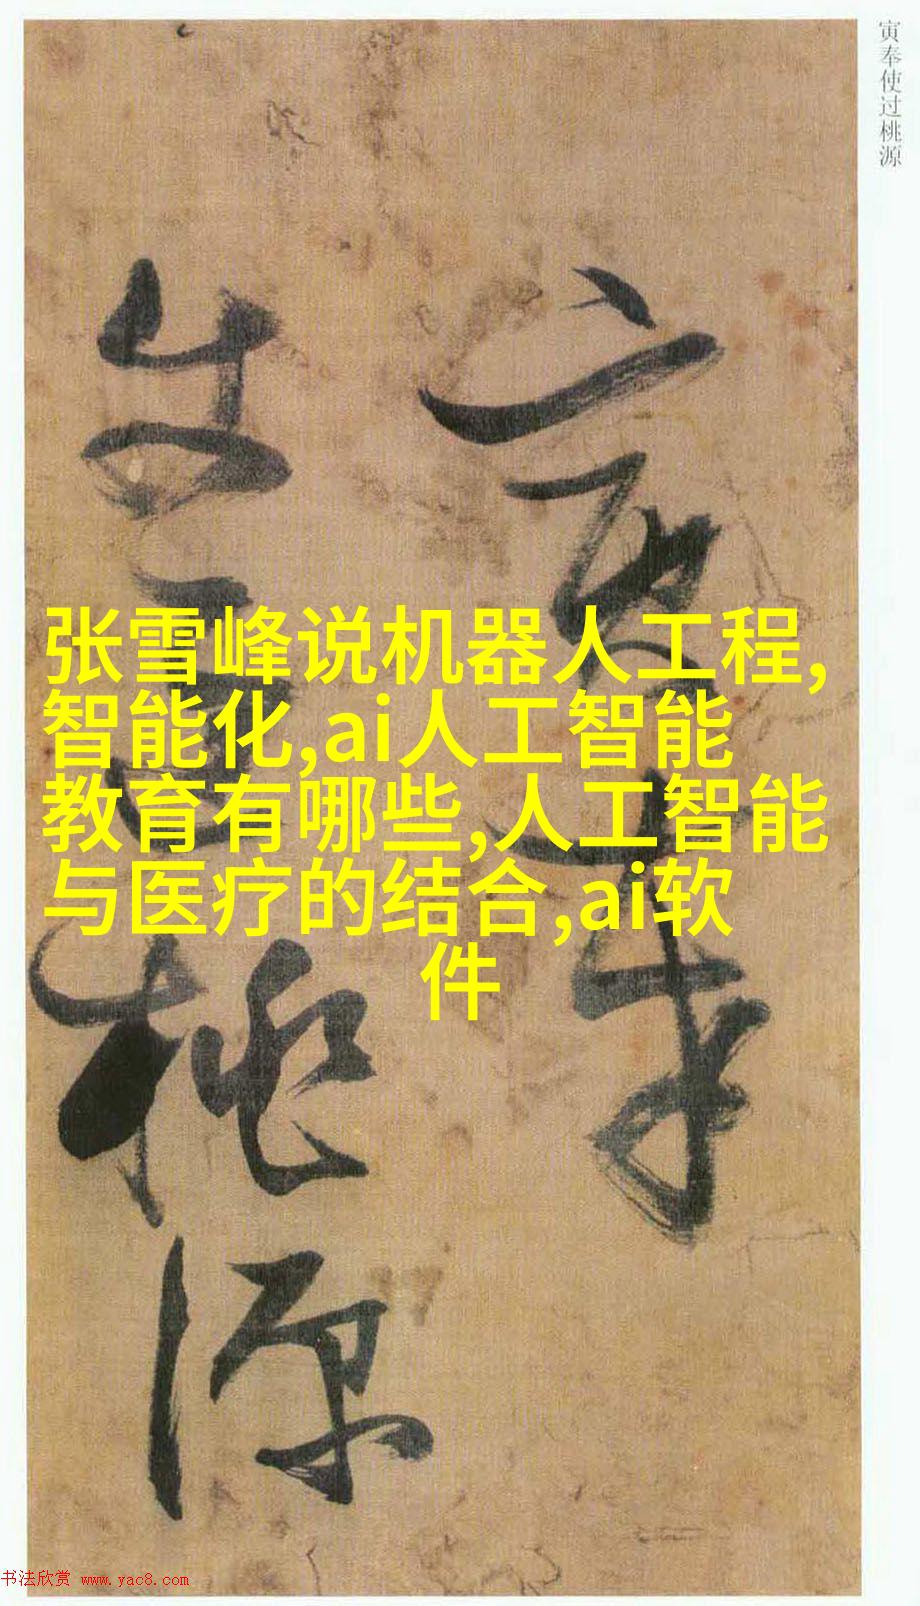 寅奉使过桃源
寅奉
使过桃源
张雪峰说机器人工程,
智能化,ai人工智能
教育有哪些,人工智能
与医疗的结合,ai软
件
书法欣赏 www.yac8.com